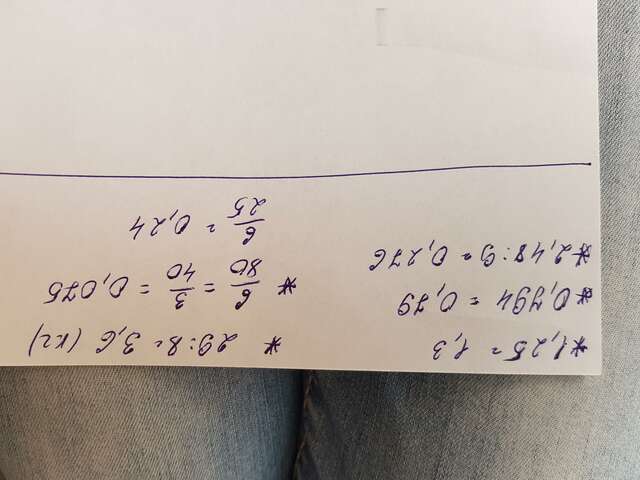 *1,25 ≈ 1,3
*0,794 ≈ 0,79
*2,48:9 ≈ 0,276
* 29:8 ≈ 3,6 (кг)
* 6/80 = 3/40 = 0,075
6/25 = 0,24